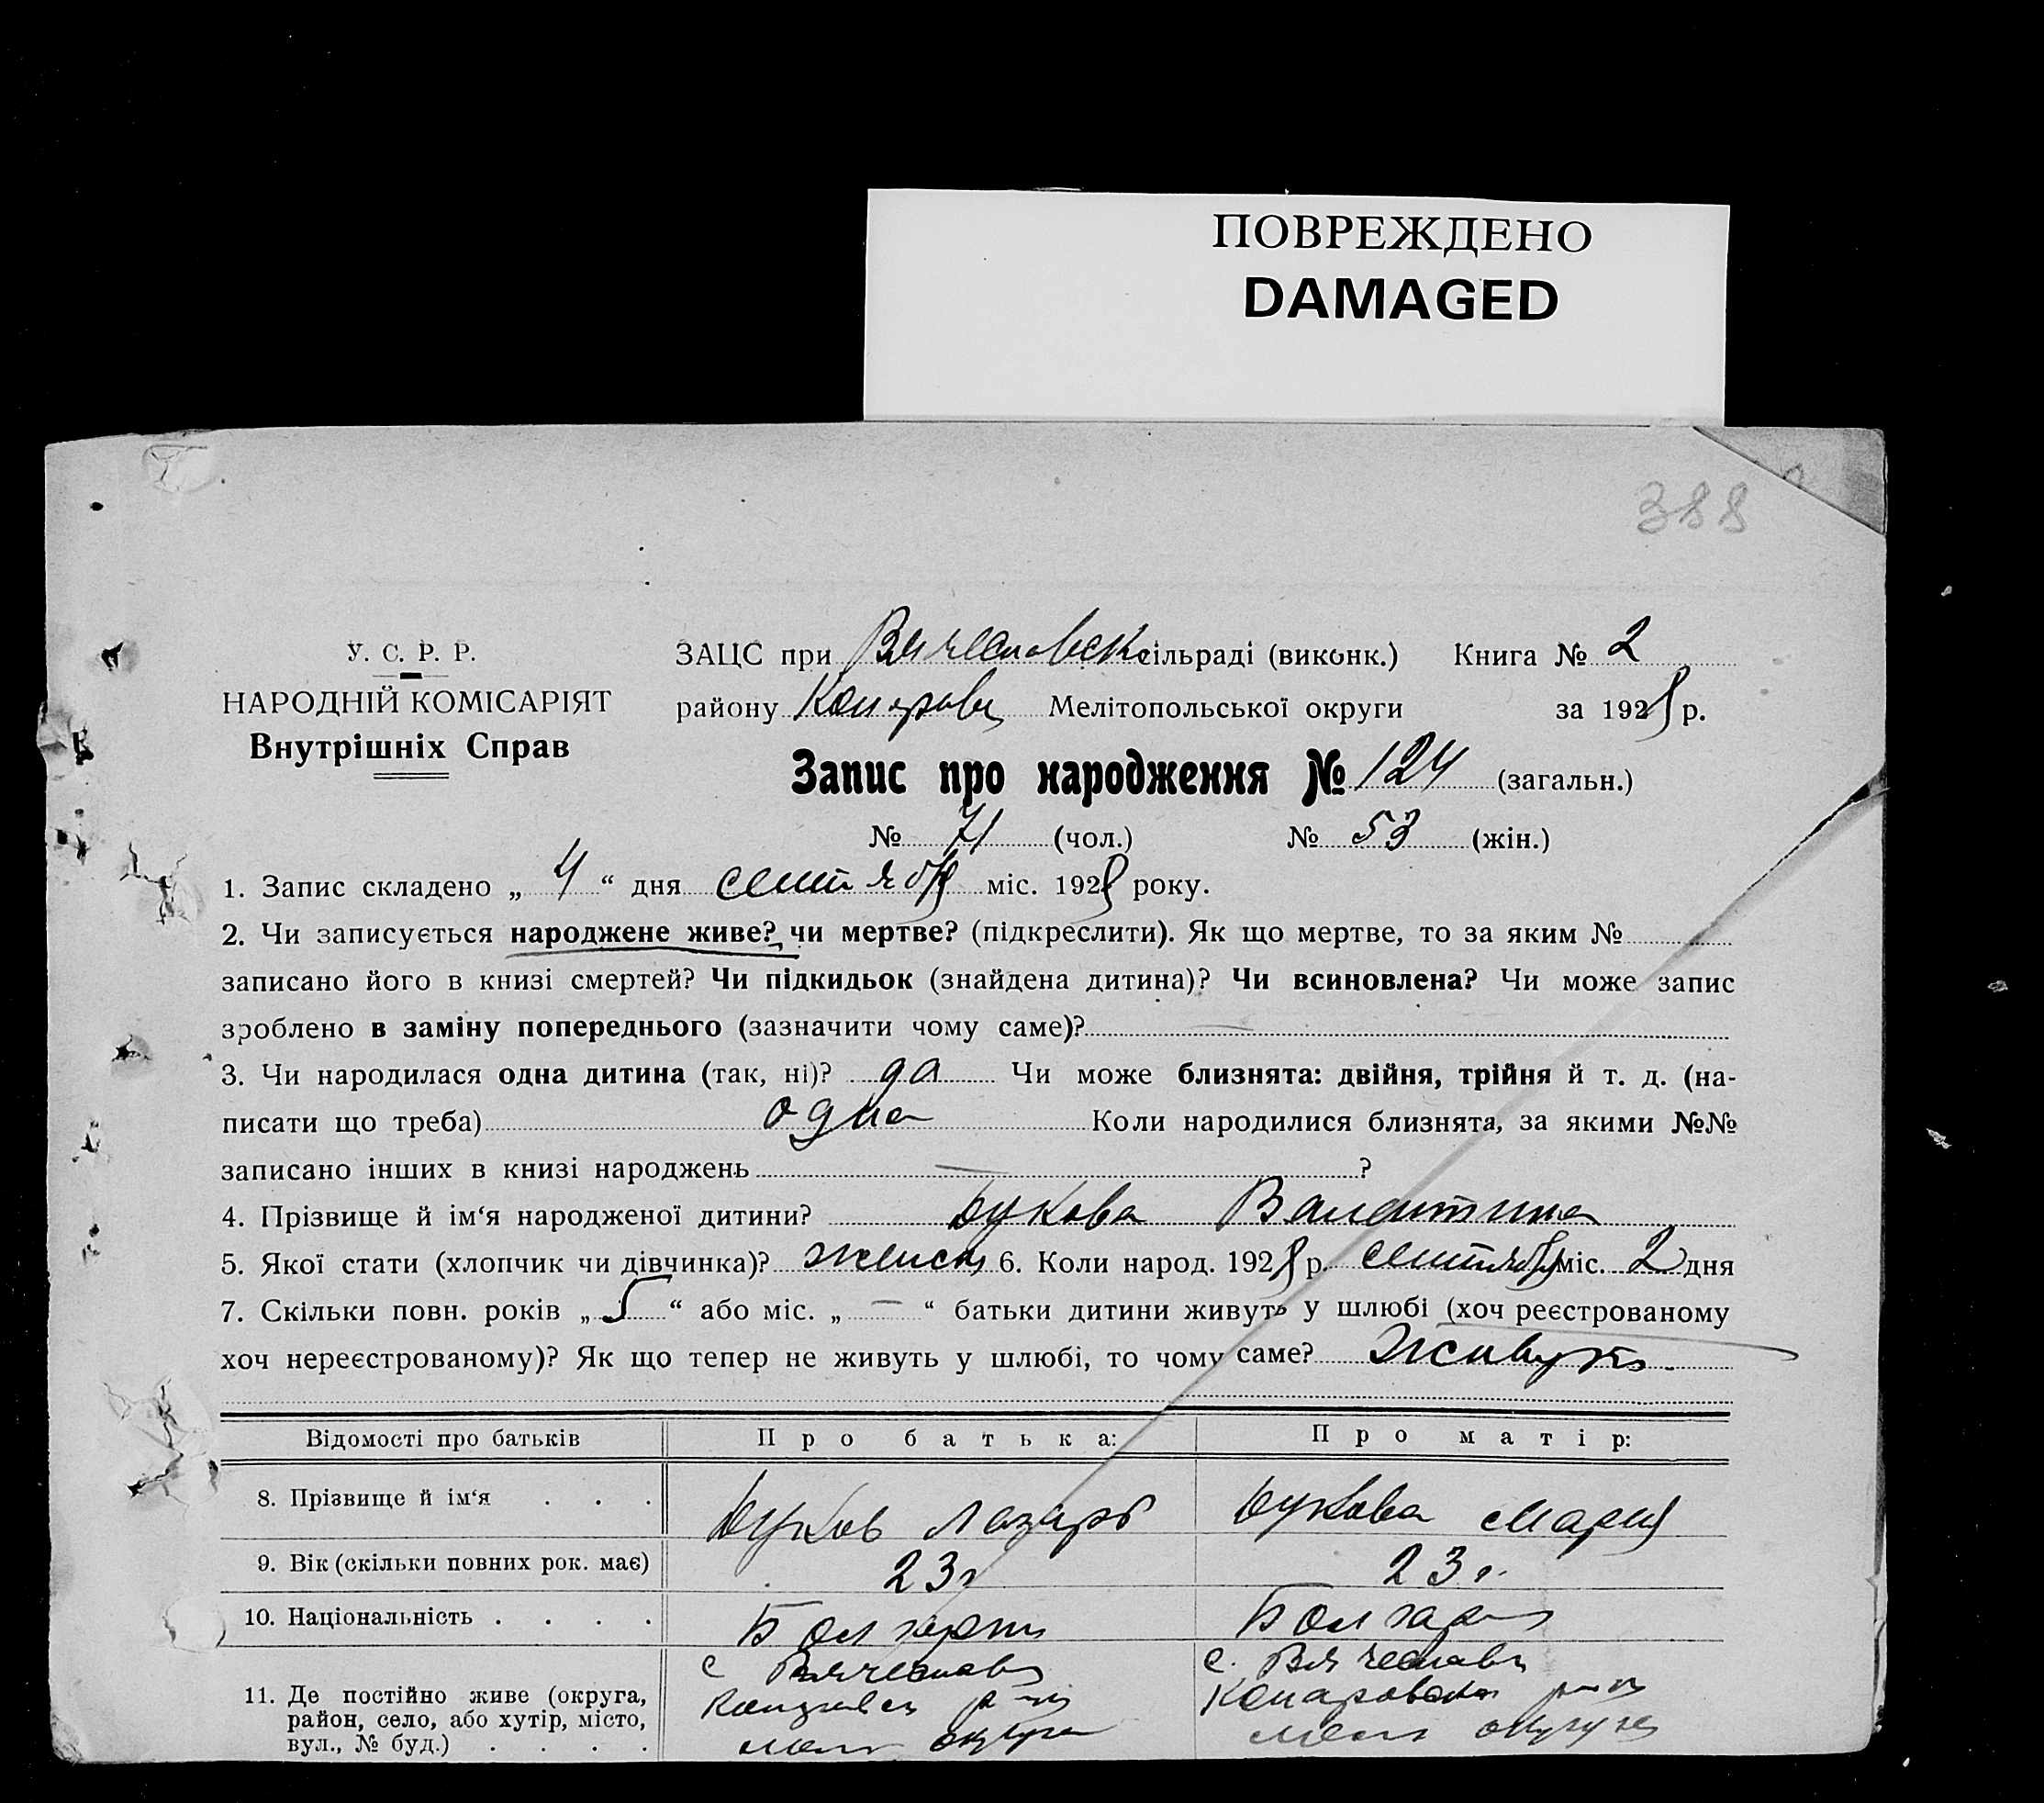 ПОВРЕЖДЕНО
DAMAGED
388
У. С. Р. Р.
НАРОДНІЙ КОМІСАРІЯТ
Внутрішніх Справ
ЗАЦС при Вячеславск сільраді (виконк.) Книга № 2
району Мелітопольської округи за 1928 р.
Запис про народження № 124 (загальн.)
№ 71 (чол.) № 53 (жін.)
1. Запис складено „ 4 “ дня сентября міс. 1928 року.
2. Чи записується народжене живе? чи мертве? (підкреслити). Як що мертве, то за яким №
записано його в книзі смертей? Чи підкидьок (знайдена дитина)? Чи всиновлена? Чи може запис
зроблено в заміну попереднього (зазначити чому саме)? —
3. Чи народилася одна дитина (так, ні)? да Чи може близнята: двійня, трійня й т. д. (на-
писати що треба) одна Коли народилися близнята, за якими №№
записано інших в книзі народжень — ?
4. Прізвище й ім‘я народженої дитини? Букова Валентина
5. Якої стати (хлопчик чи дівчинка)? женск 6. Коли народ. 1928 р. сентября міс. 2 дня
7. Скільки повн. років „ 5 “ або міс. „ — “ батьки дитини живуть у шлюбі (хоч реєстрованому
хоч нереєстрованому)? Як що тепер не живуть у шлюбі, то чому саме? Живуть.
Відомості про батьків Про батька: Про матір:
8. Прізвище й ім‘я . . . Буков Лазарь Букова Мария
9. Вік (скільки повних рок. має) 23 г 23 г.
10. Національність . . . . Болгарин Болгар
11. Де постійно живе (округа, район, село, або хутір, місто, вул., № буд.) . . . .
с Вячеславк
округа
с. Вячеславк
Конаровск
округи